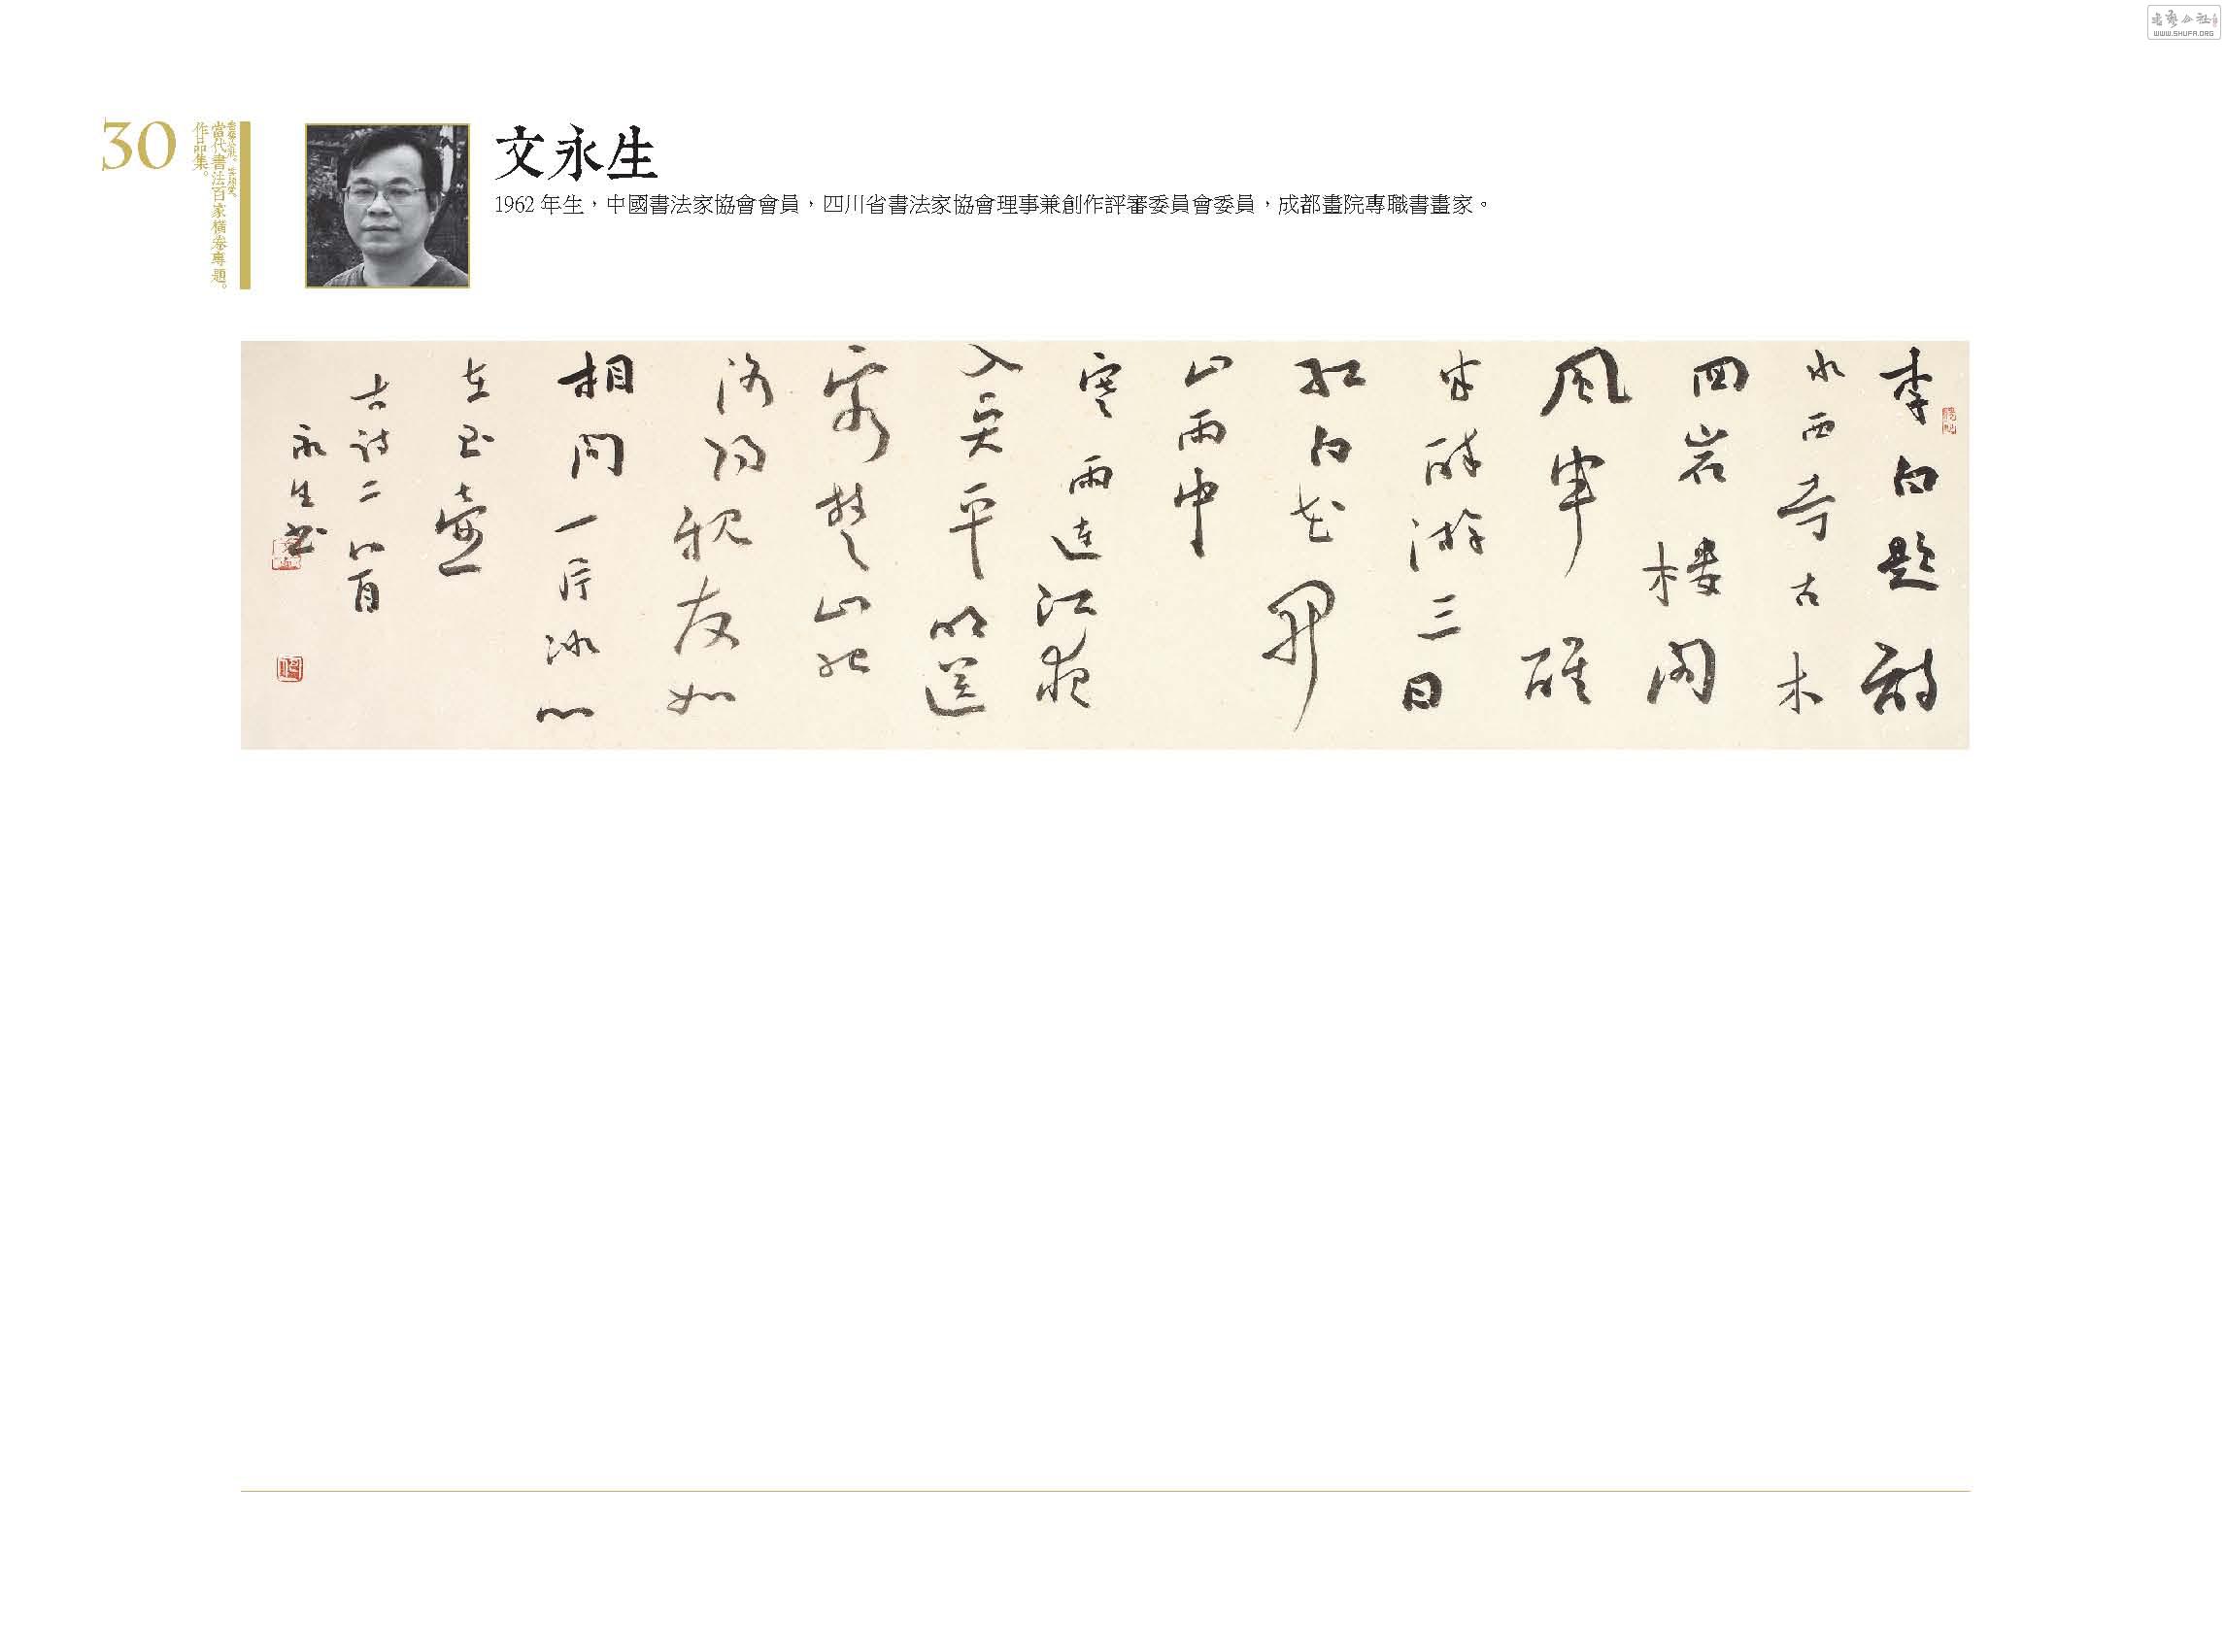 書藝公社
WWW.SHUFA.ORG
30
當代書法百家橫卷專題。
作品集。
文永生
1962 年生，中國書法家協會會員，四川省書法家協會理事兼創作評審委員會委員，成都畫院專職書畫家。
李白題詩
水西寺古木
回岩樓閣
風半醒
半醉游三日
紅白花開
山雨中
寒雨連江夜
入吳平明送
客楚山孤
洛陽親友如
相問一片冰心
在玉壺
古詩二首
永生書